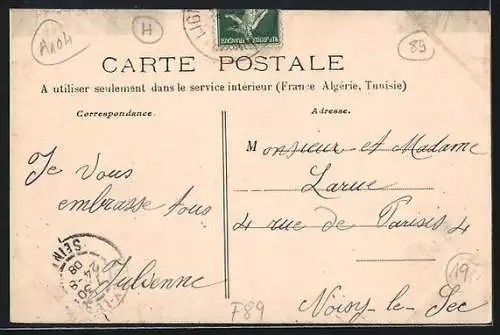 A104
H
LIGU
REPUBLIQUE FRANÇAISE
89
CARTE POSTALE
A utiliser seulement dans le service intérieur (France Algérie, Tunisie)
Correspondance.
Adresse.
Je vous
embrasse tous
Julienne
SEIN
Monsieur et Madame
Larue
4 rue de Parisis 4
Noisy-le-Sec
19
F89